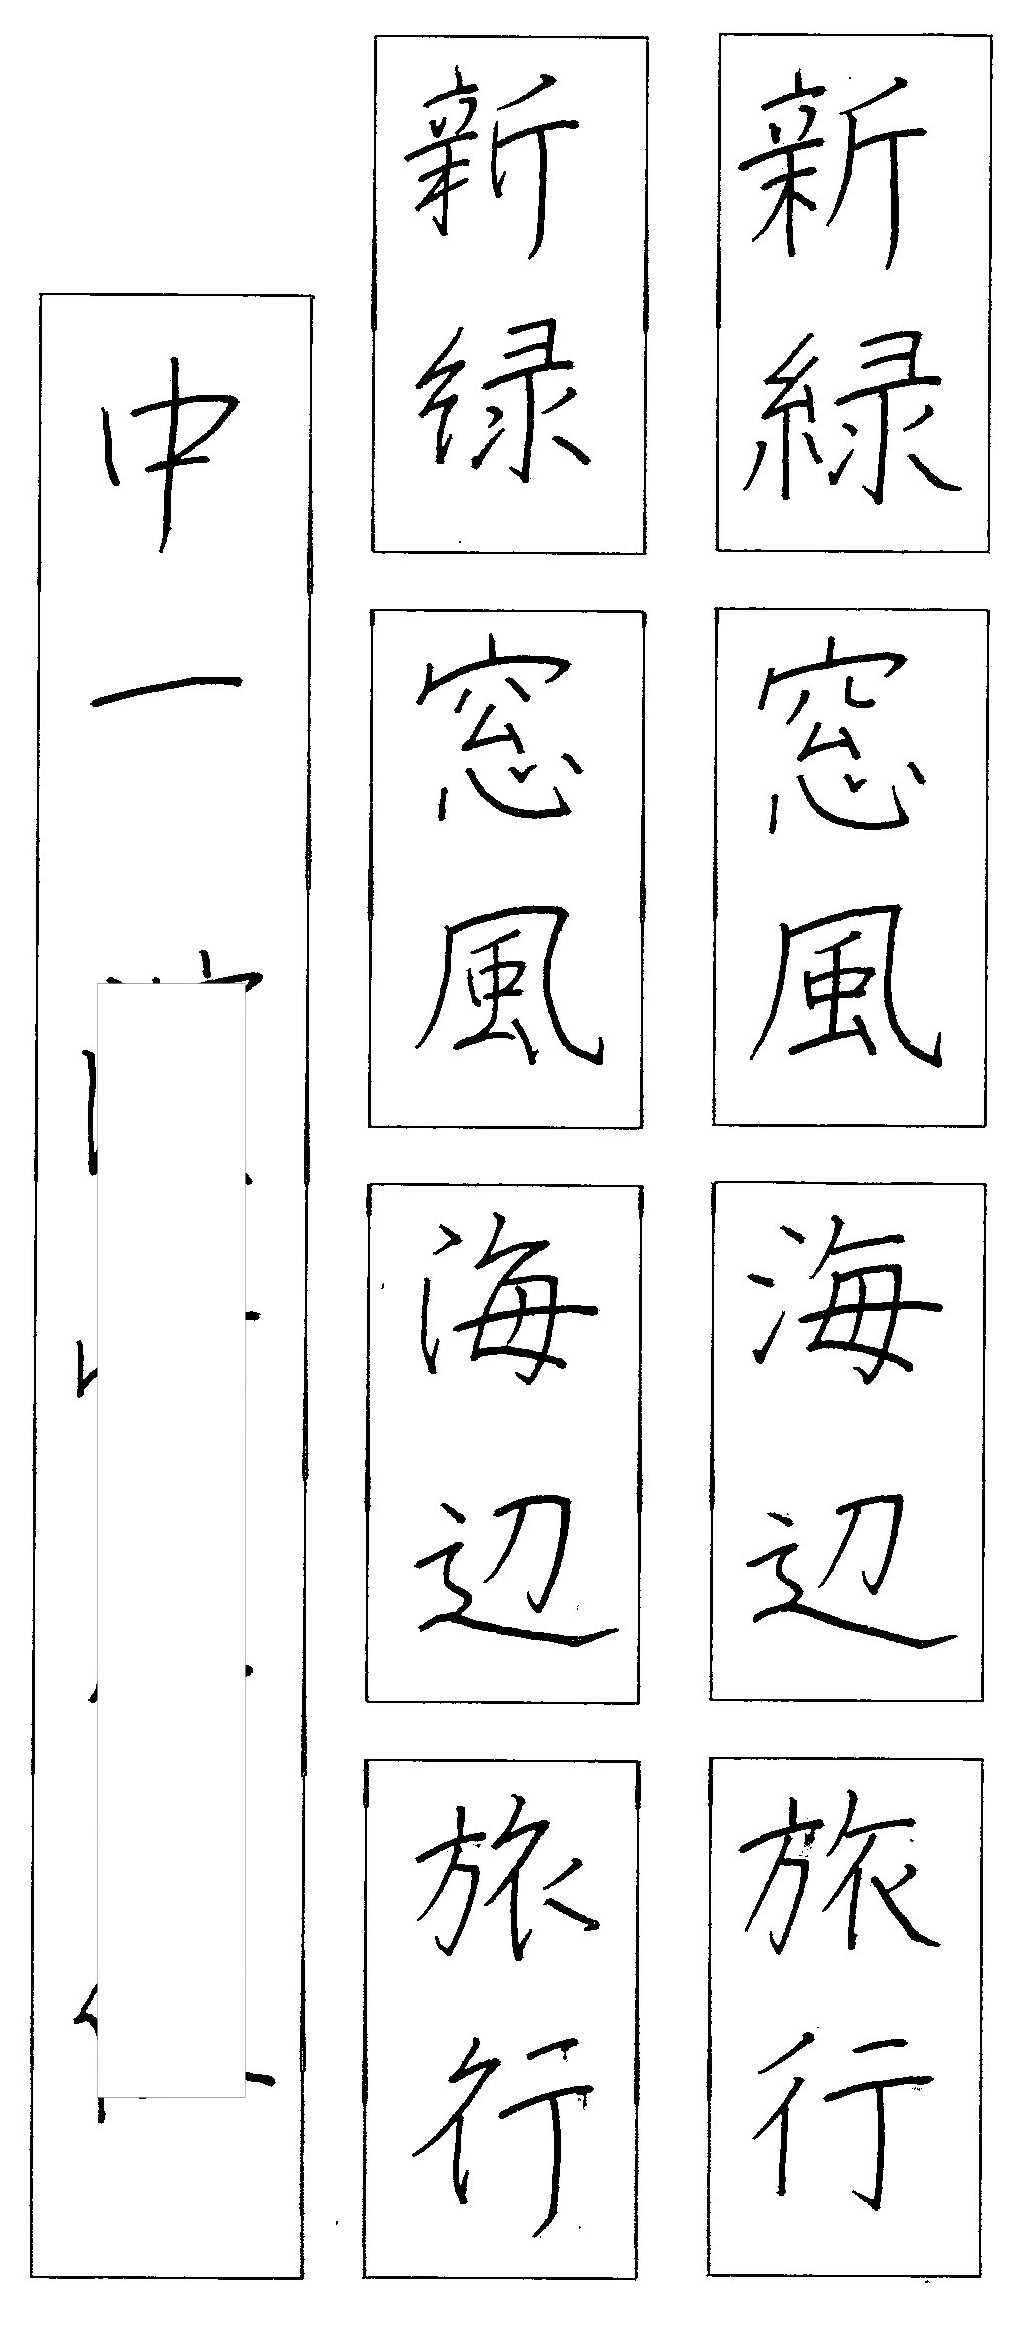 新緑
窓風
海辺
旅行
新緑
窓風
海辺
旅行
中一